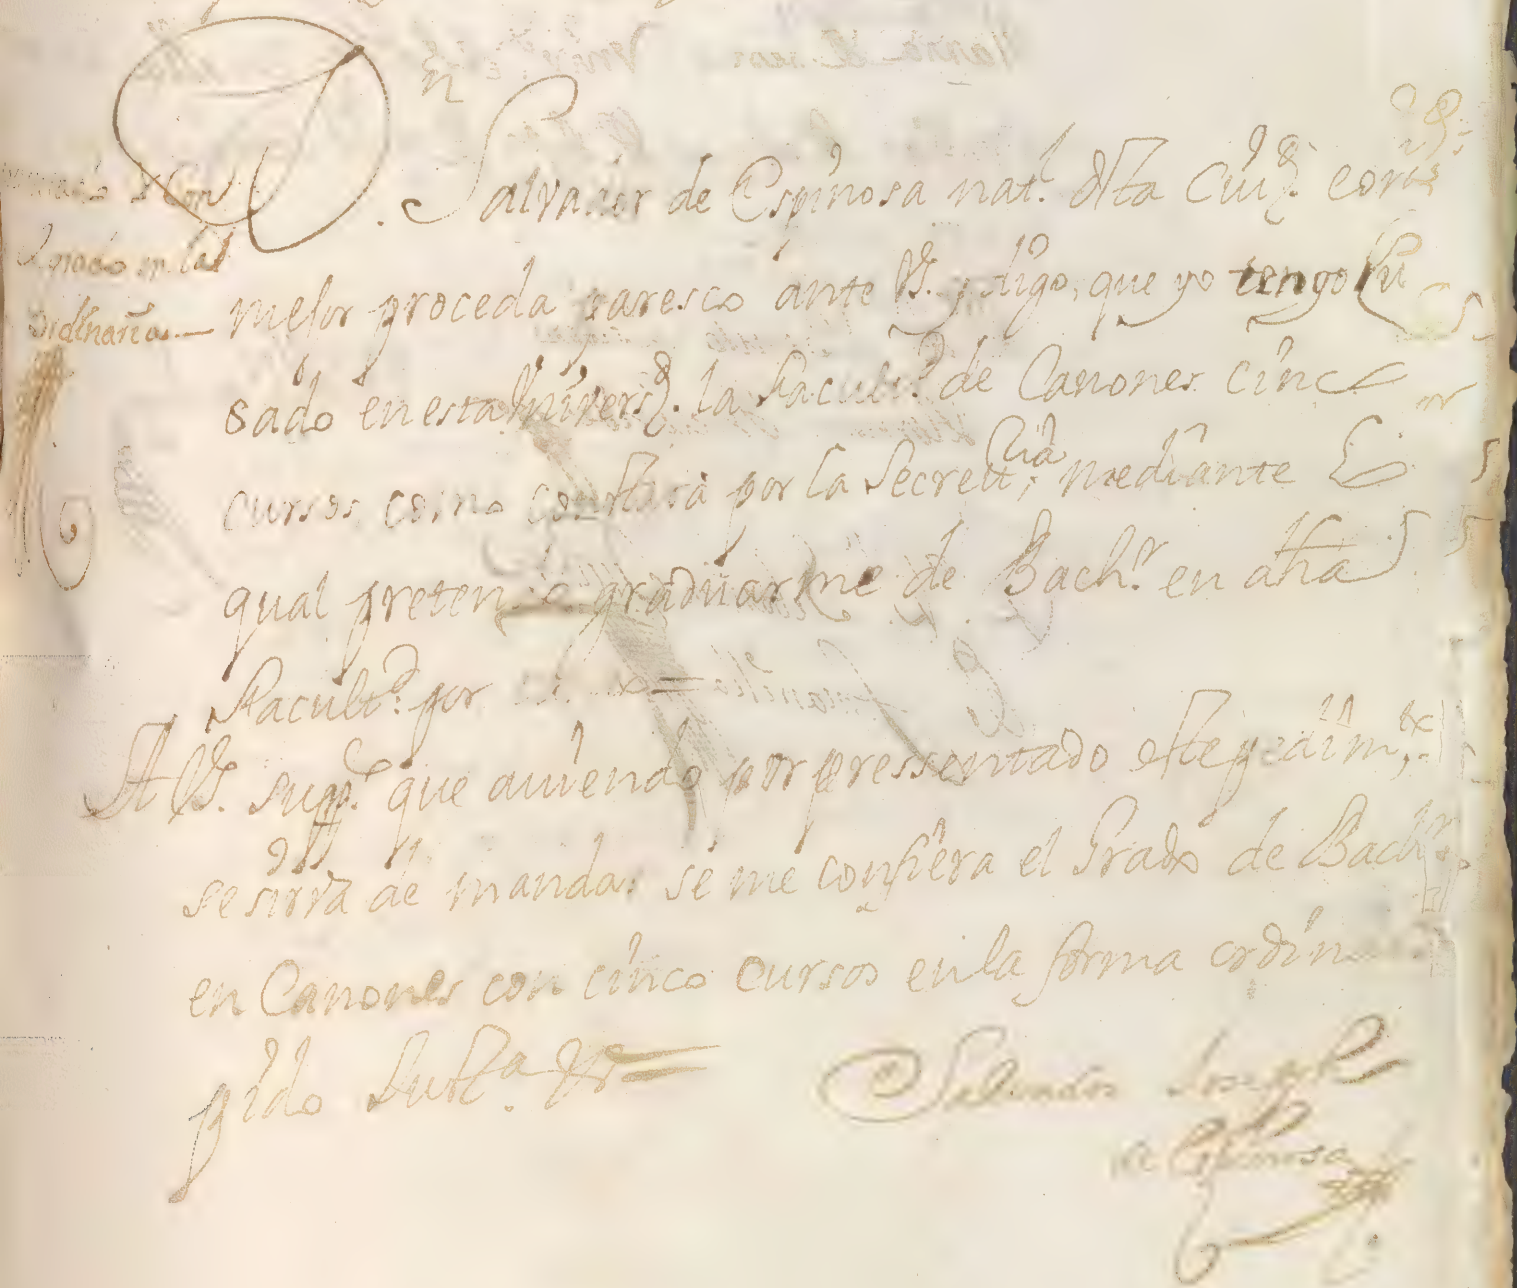 D. Salvador de Espinosa natl. desta Ciud. como
mejor proceda paresco ante VS. y digo, que yo tengo cur
sado en esta Universd. la facultd. de Canones cinco
cursos, como constará por la Secretria, mediante lo
qual pretendo graduarme de Bachr. en dha
facultd. por
A VS. suppco. que aviendo por pressentado este pedimto.
se sirva de mandar se me confiera el Grado de Bachr.
en Canones con cinco cursos en la forma ordin
pido Justa. &
Salvador Joseph
de Espinosa